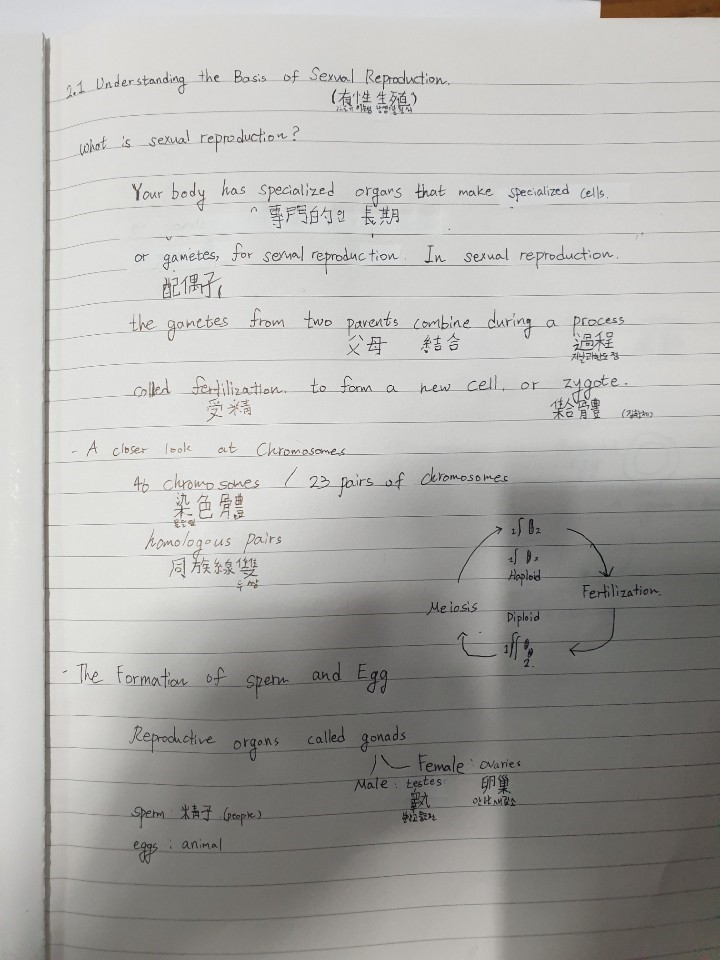 2.1 Understanding the Basis of Sexual Reproduction.
(有性生殖)
What is sexual reproduction?
Your body has specialized organs that make specialized cells.
專門的 長期
or gametes, for sexual reproduction. In sexual reproduction.
配偶子
the gametes from two parents combine during a process
父母 結合 過程
called fertilization. to form a new cell, or zygote.
受精 集合體
- A closer look at Chromosomes
46 chromosones / 23 pairs of chromosomes
染色體
homologous pairs
同族線雙
두쌍
1 2
1 2
Haploid
Meiosis Fertilization.
Diploid
1 2.
- The Formation of sperm and Egg
Reproductive organs called gonads
Female: ovaries
Male: testes 卵巢
sperm 精子 (people)
eggs : animal